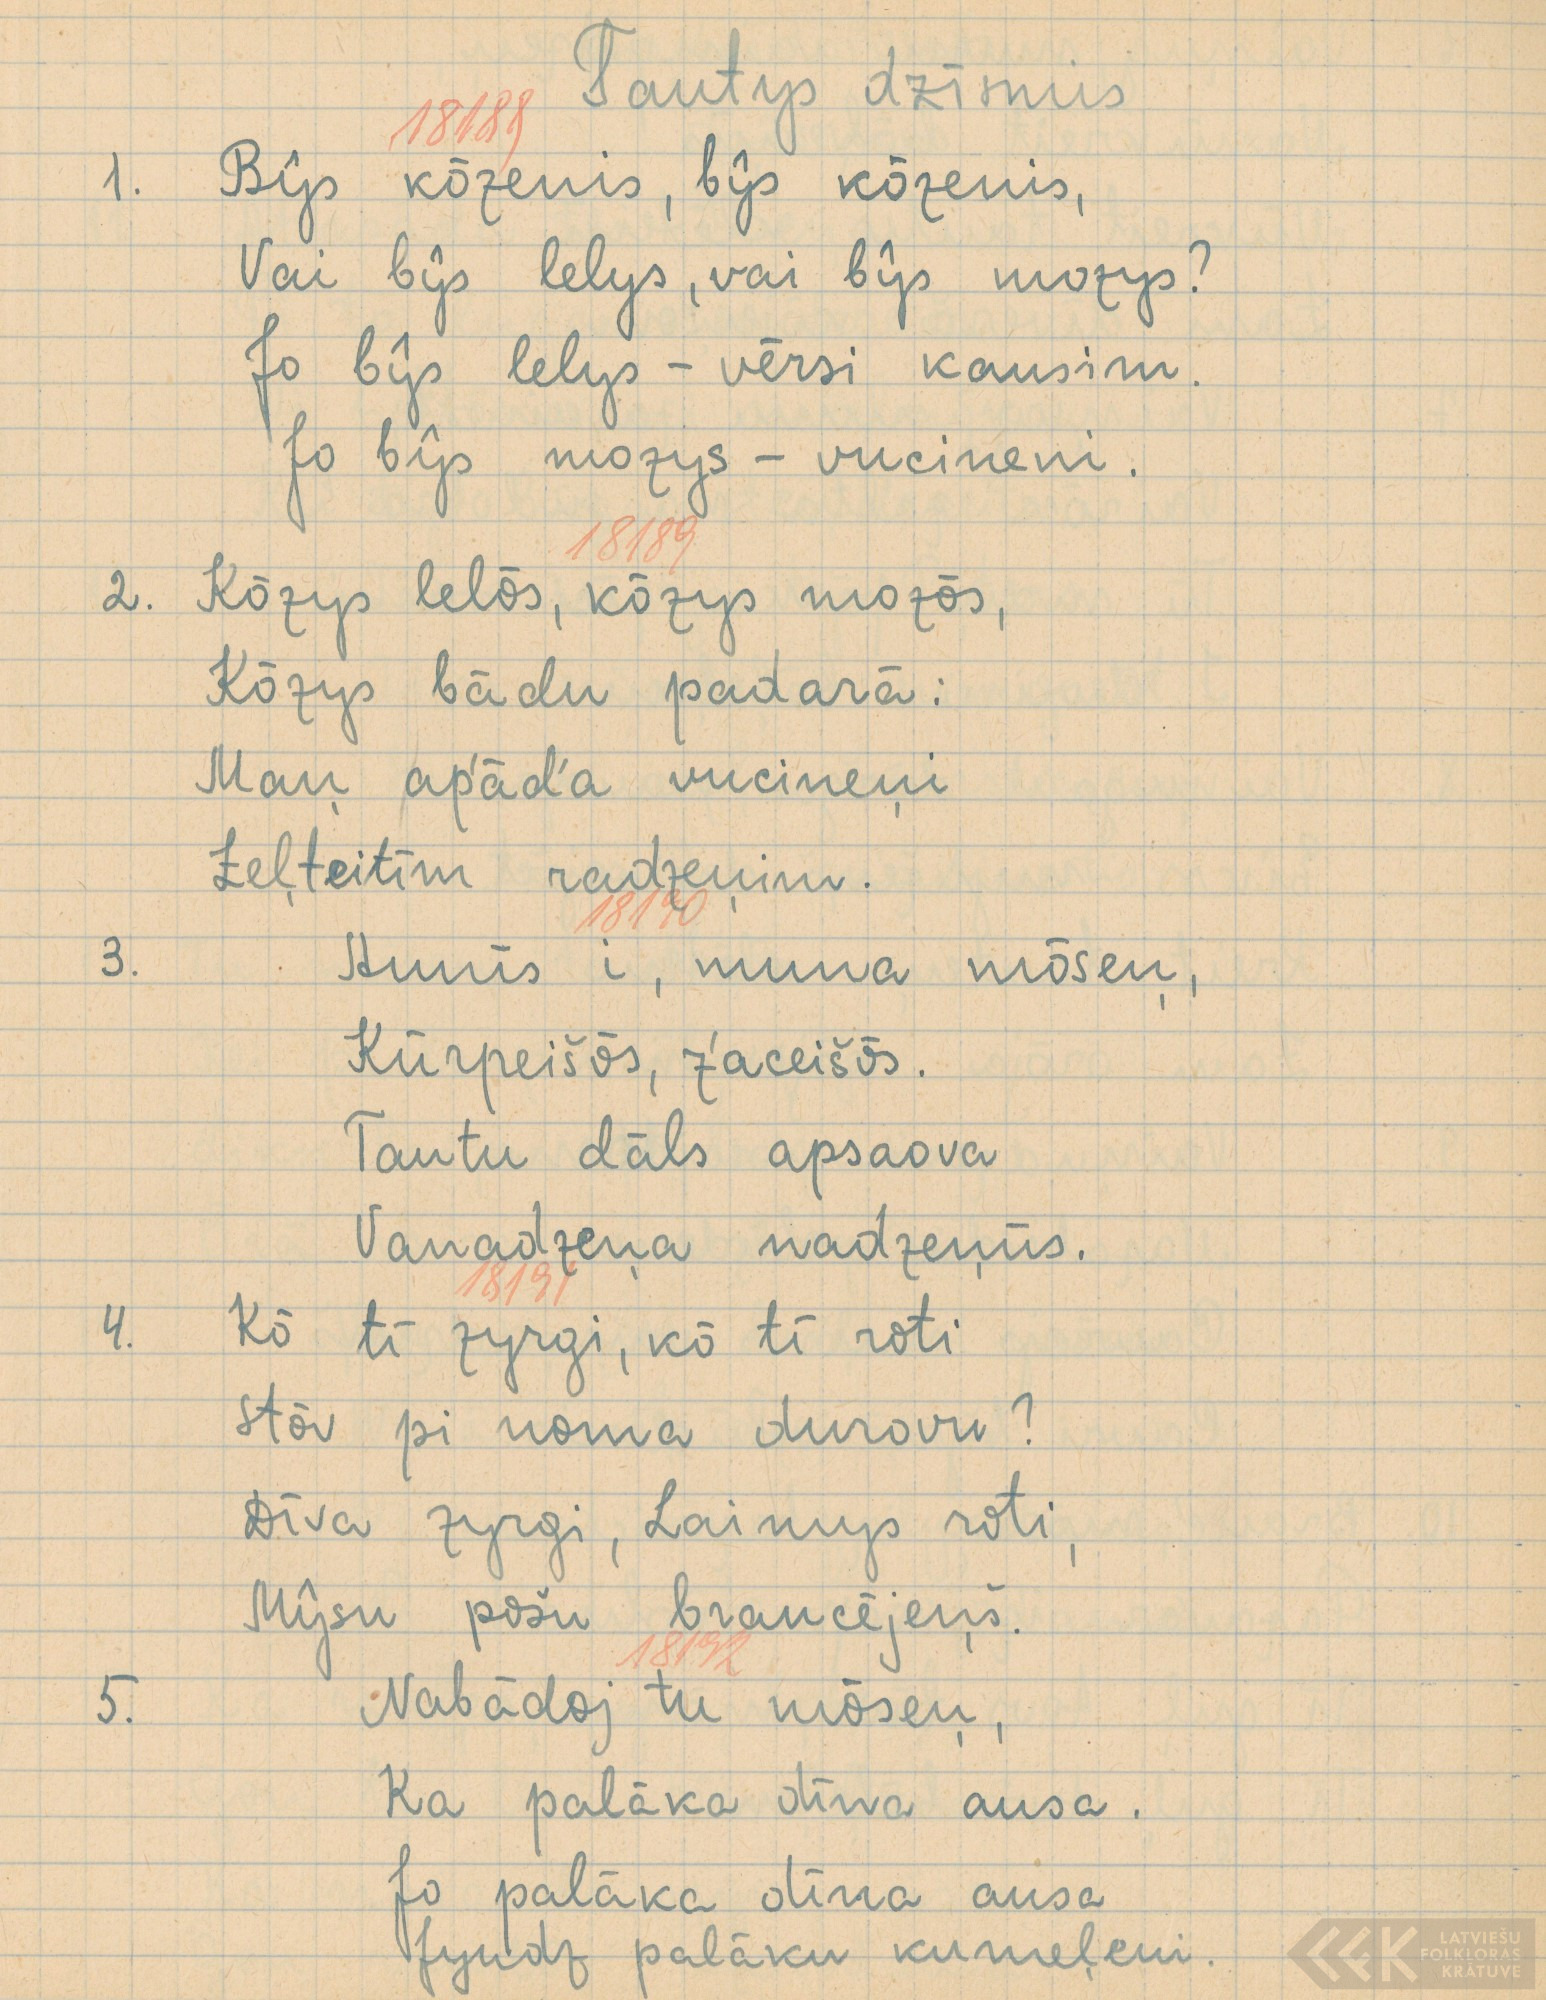 Tautys dzīsmis
18188
1. Bŷs kōzenis, bŷs kōzenis,
Vai bŷs lelys, vai bŷs mozys?
Jo bŷs lelys – vērsi kausim.
Jo bŷs mozys – vucineni.
18189
2. Kōzys lelōs, kōzys mozōs,
Kōzys bādu padarā:
Maņ ap'ād'a vucineņi
Zeļteitīm radzeņim.
18190
3. Aunīs i, muna mōseņ,
Kūrpeišōs, z'aceišōs.
Tautu dāls apsaova
Vanadzeņa nadzeņūs.
18191
4. Kō tī zyrgi, kō tī roti
Stōv pi noma durovu?
Dīva zyrgi, Laimys roti,
Mŷsu pošu braucējeņš.
18192
5. Nabādoj tu mōseņ,
Ka palāka dīna ausa.
Jo palāka dīna ausa
Jyudz palāku kumeļeni.
LATVIEŠU
FOLKLORAS
KRĀTUVE